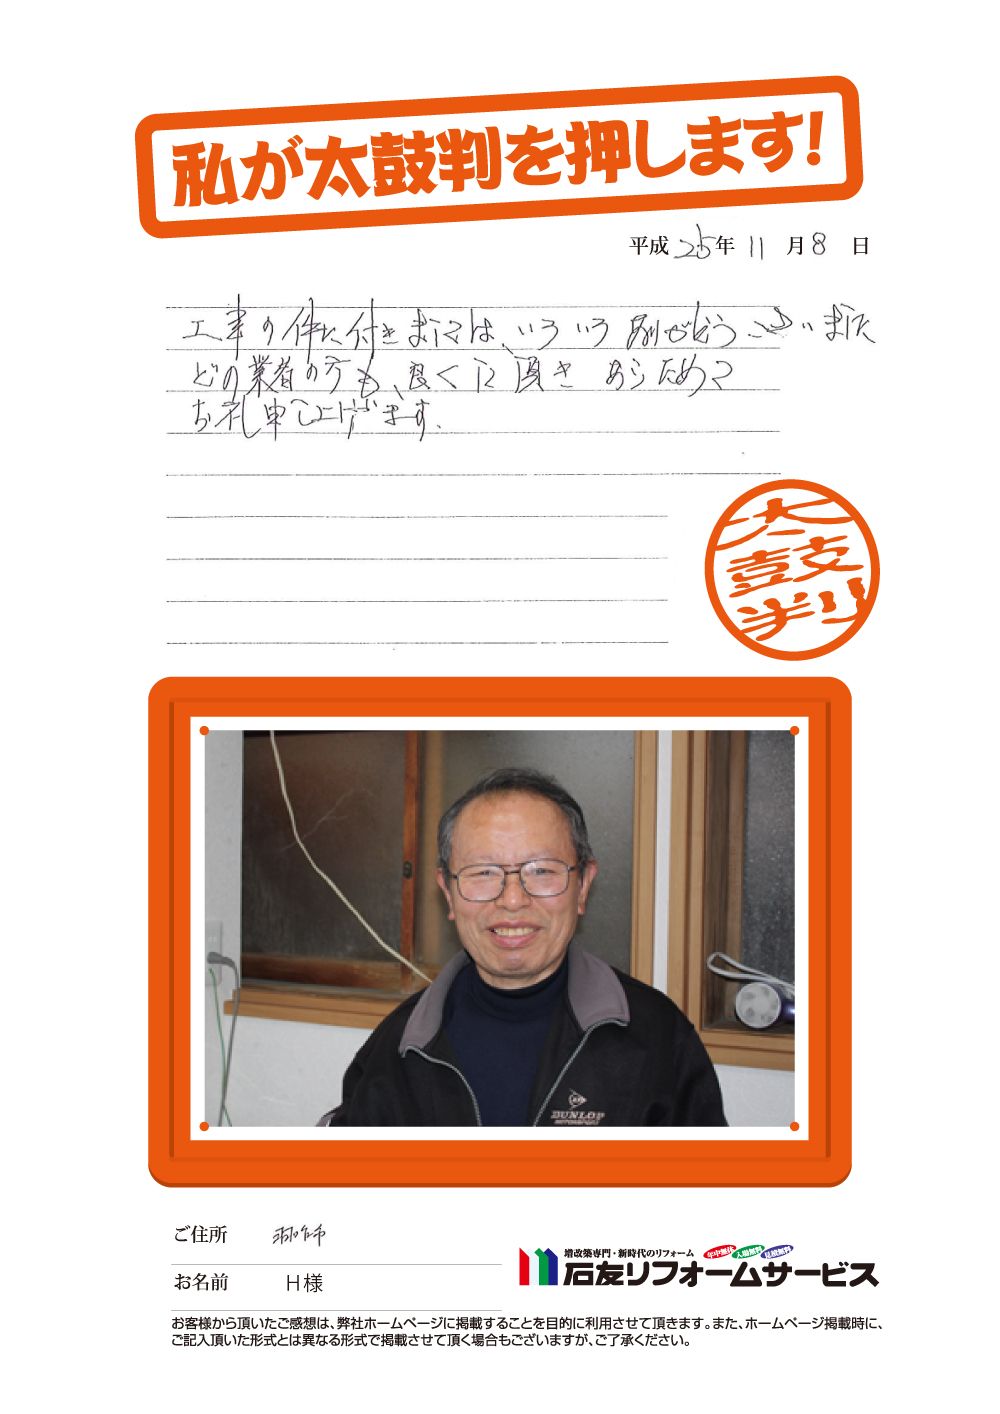 私が太鼓判を押します!
平成25年11月8日
工事の件に付きましては、いろいろ有がとうございました
どの業者の方も、良くして頂き あらためて
お礼申し上げます。
太鼓判
DUNLOP
MOTORSPORT
ご住所
お名前 H様
増改築専門・新時代のリフォーム 年中無休 入場無料 見積無料
石友リフォームサービス
お客様から頂いたご感想は、弊社ホームページに掲載することを目的に利用させて頂きます。また、ホームページ掲載時に、
ご記入頂いた形式とは異なる形式で掲載させて頂く場合もございますが、ご了承ください。